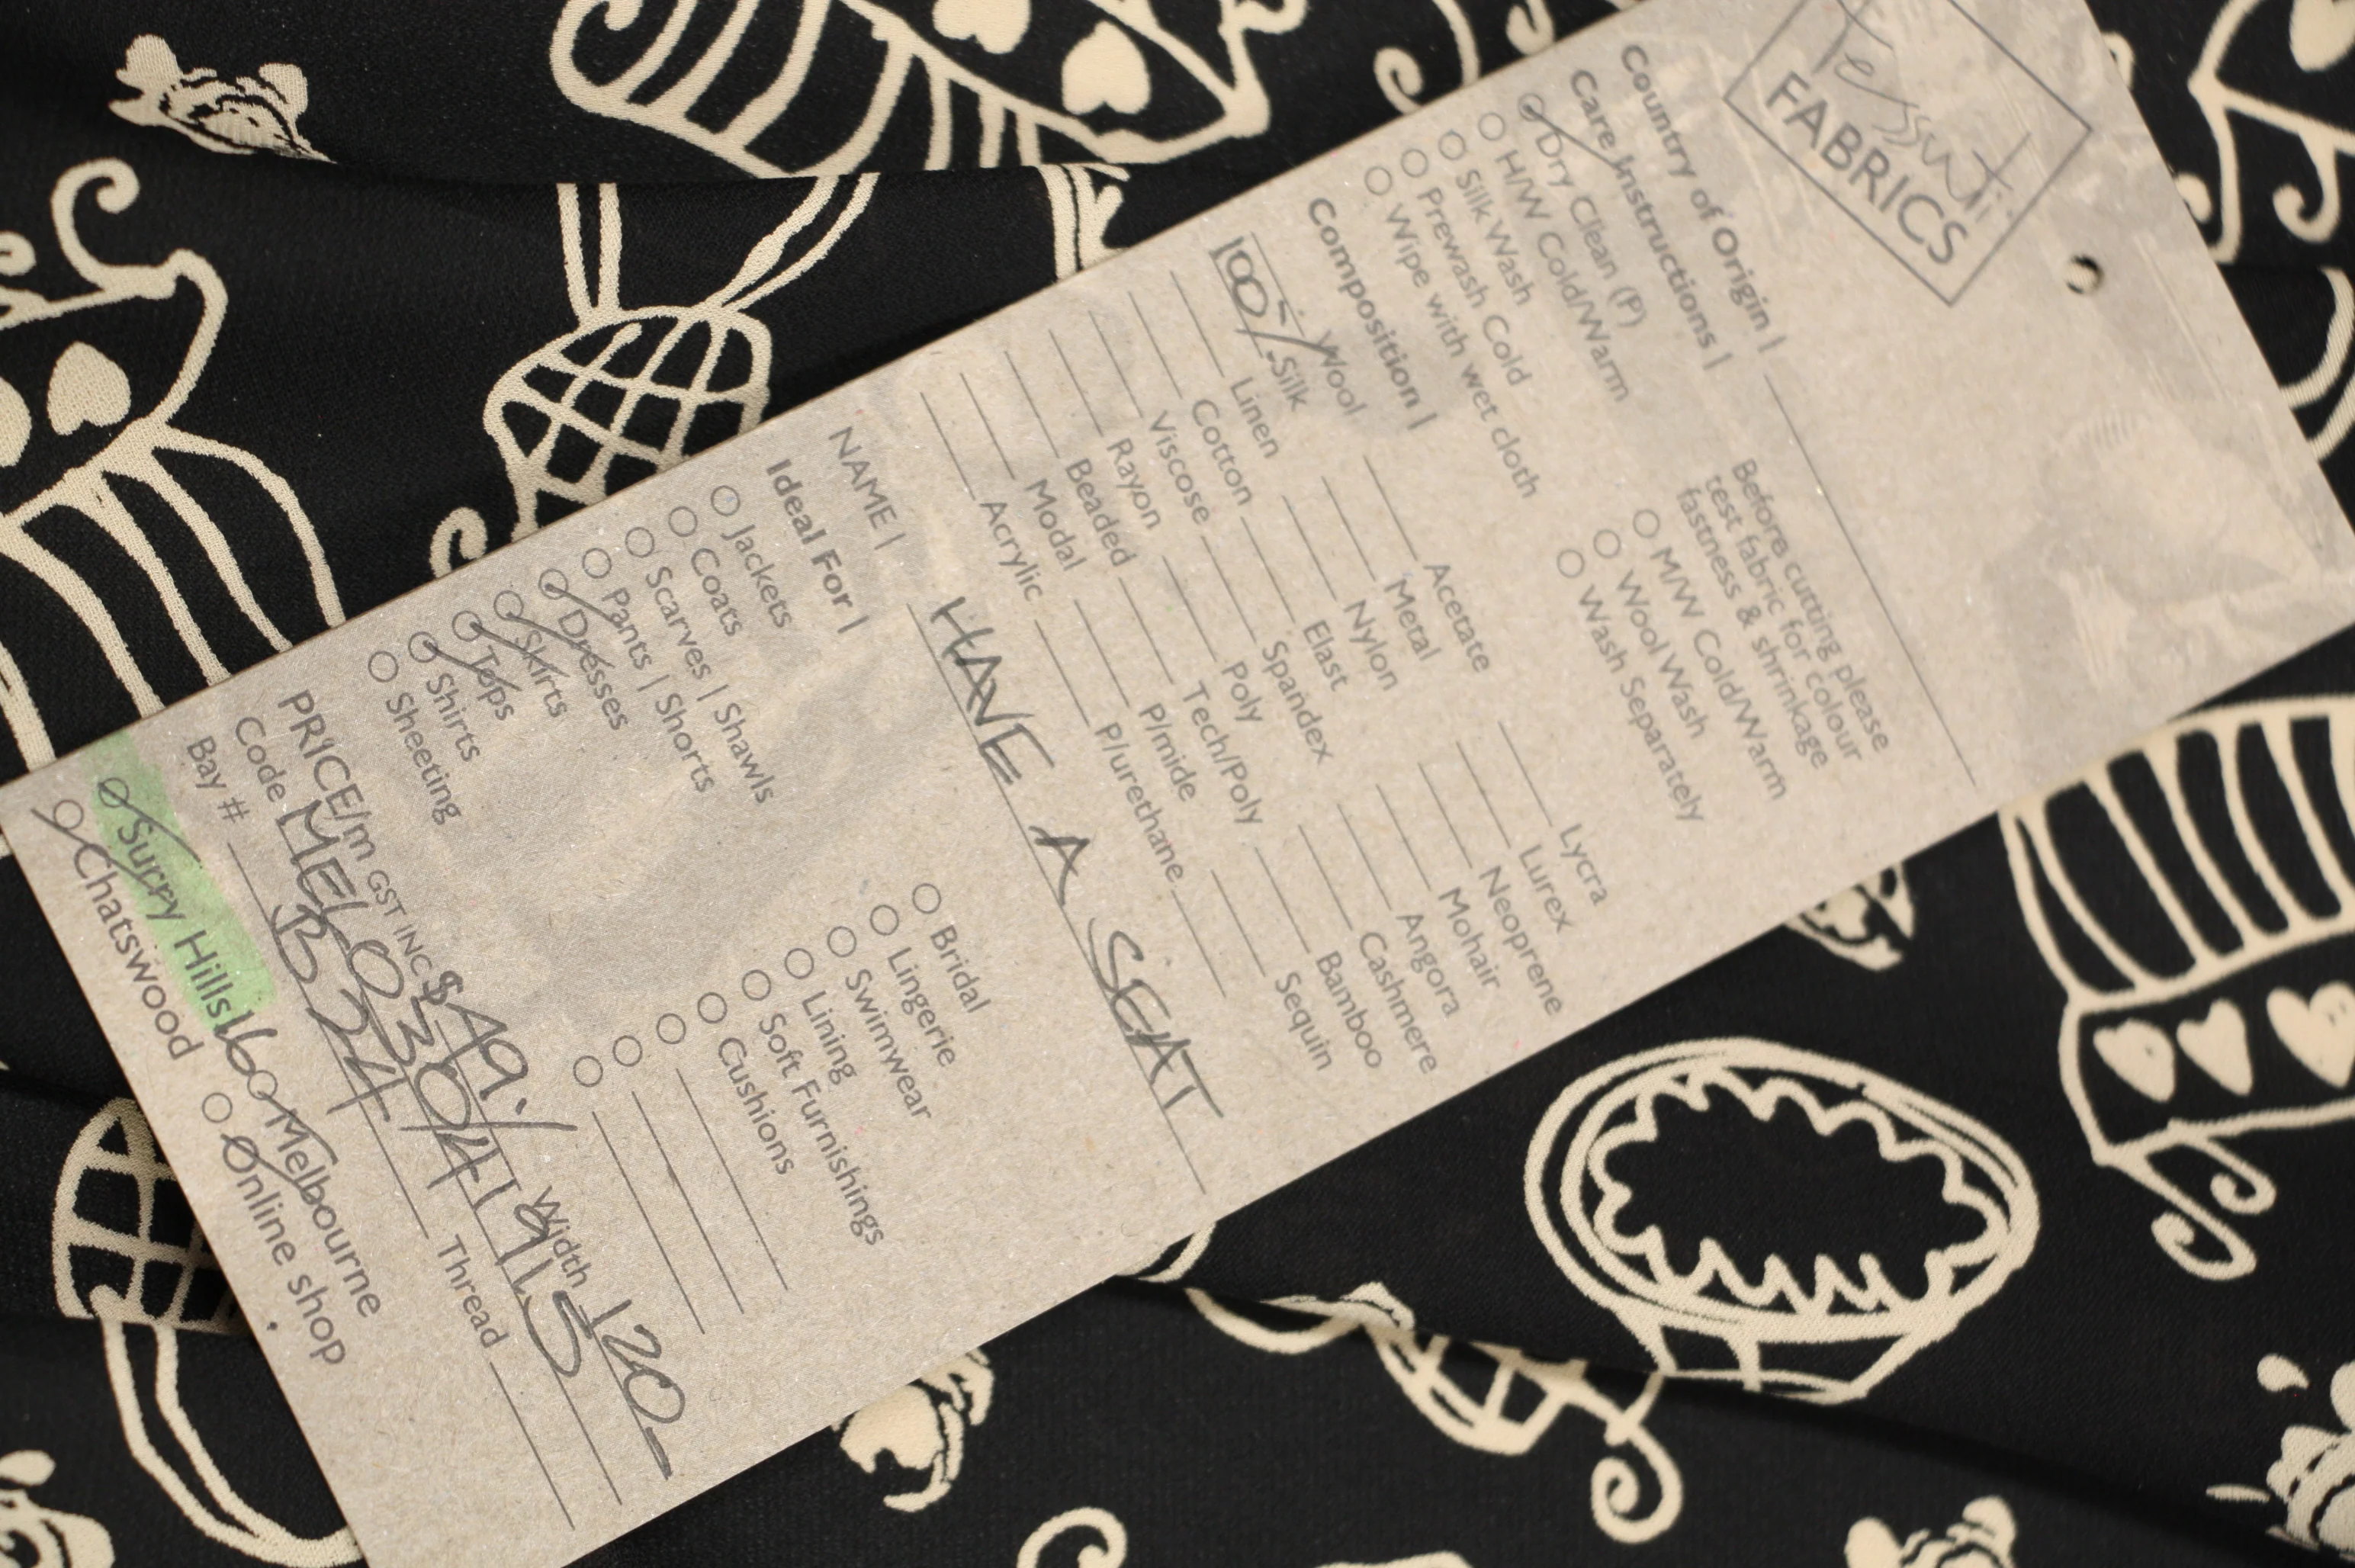 Tessuti
FABRICS
Country of Origin |
Care Instructions |
Dry Clean (P)
H/W Cold/Warm
Silk Wash
Prewash Cold
Wipe with wet cloth
Before cutting please
test fabric for colour
fastness & shrinkage
M/W Cold/Warm
Wool Wash
Wash Separately
Composition |
Wool
100% Silk
Linen
Cotton
Viscose
Rayon
Beaded
Modal
Acrylic
Acetate
Metal
Nylon
Elast
Spandex
Poly
Tech/Poly
P/mide
P/urethane
Lycra
Lurex
Neoprene
Mohair
Angora
Cashmere
Bamboo
Sequin
NAME | HAVE A SEAT
Ideal For |
Jackets
Coats
Scarves | Shawls
Pants | Shorts
Dresses
Skirts
Tops
Shirts
Sheeting
Bridal
Lingerie
Swimwear
Lining
Soft Furnishings
Cushions
PRICE/m GST INC $ Width 120
Code
Bay # B24 Thread
Surry Hills 160 Melbourne
Chatswood Online shop